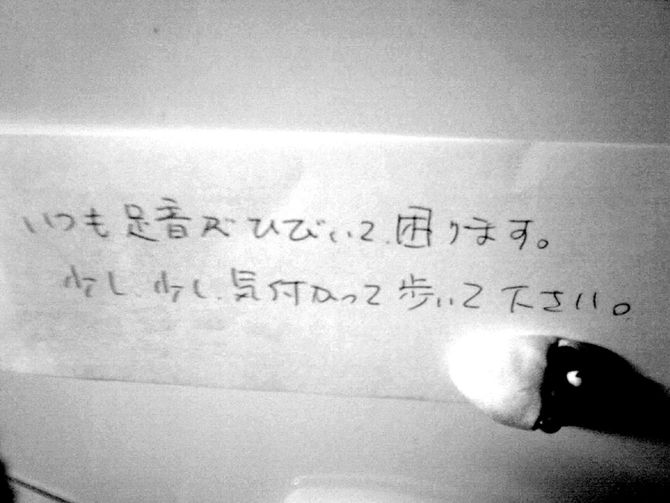 いつも足音がひびいて.困ります。
少し.少し.気付かって歩いて下さい。